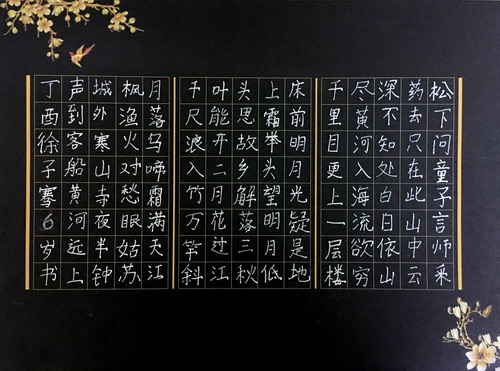 松下问童子言师采
药去只在此山中云
深不知处白日依山
尽黄河入海流欲穷
千里目更上一层楼
床前明月光疑是地
上霜举头望明月低
头思故乡解落三秋
叶能开二月花过江
千尺浪入竹万竿斜
月落乌啼霜满天江
枫渔火对愁眠姑苏
城外寒山寺夜半钟
声到客船黄河远上
丁酉徐子骞6岁书